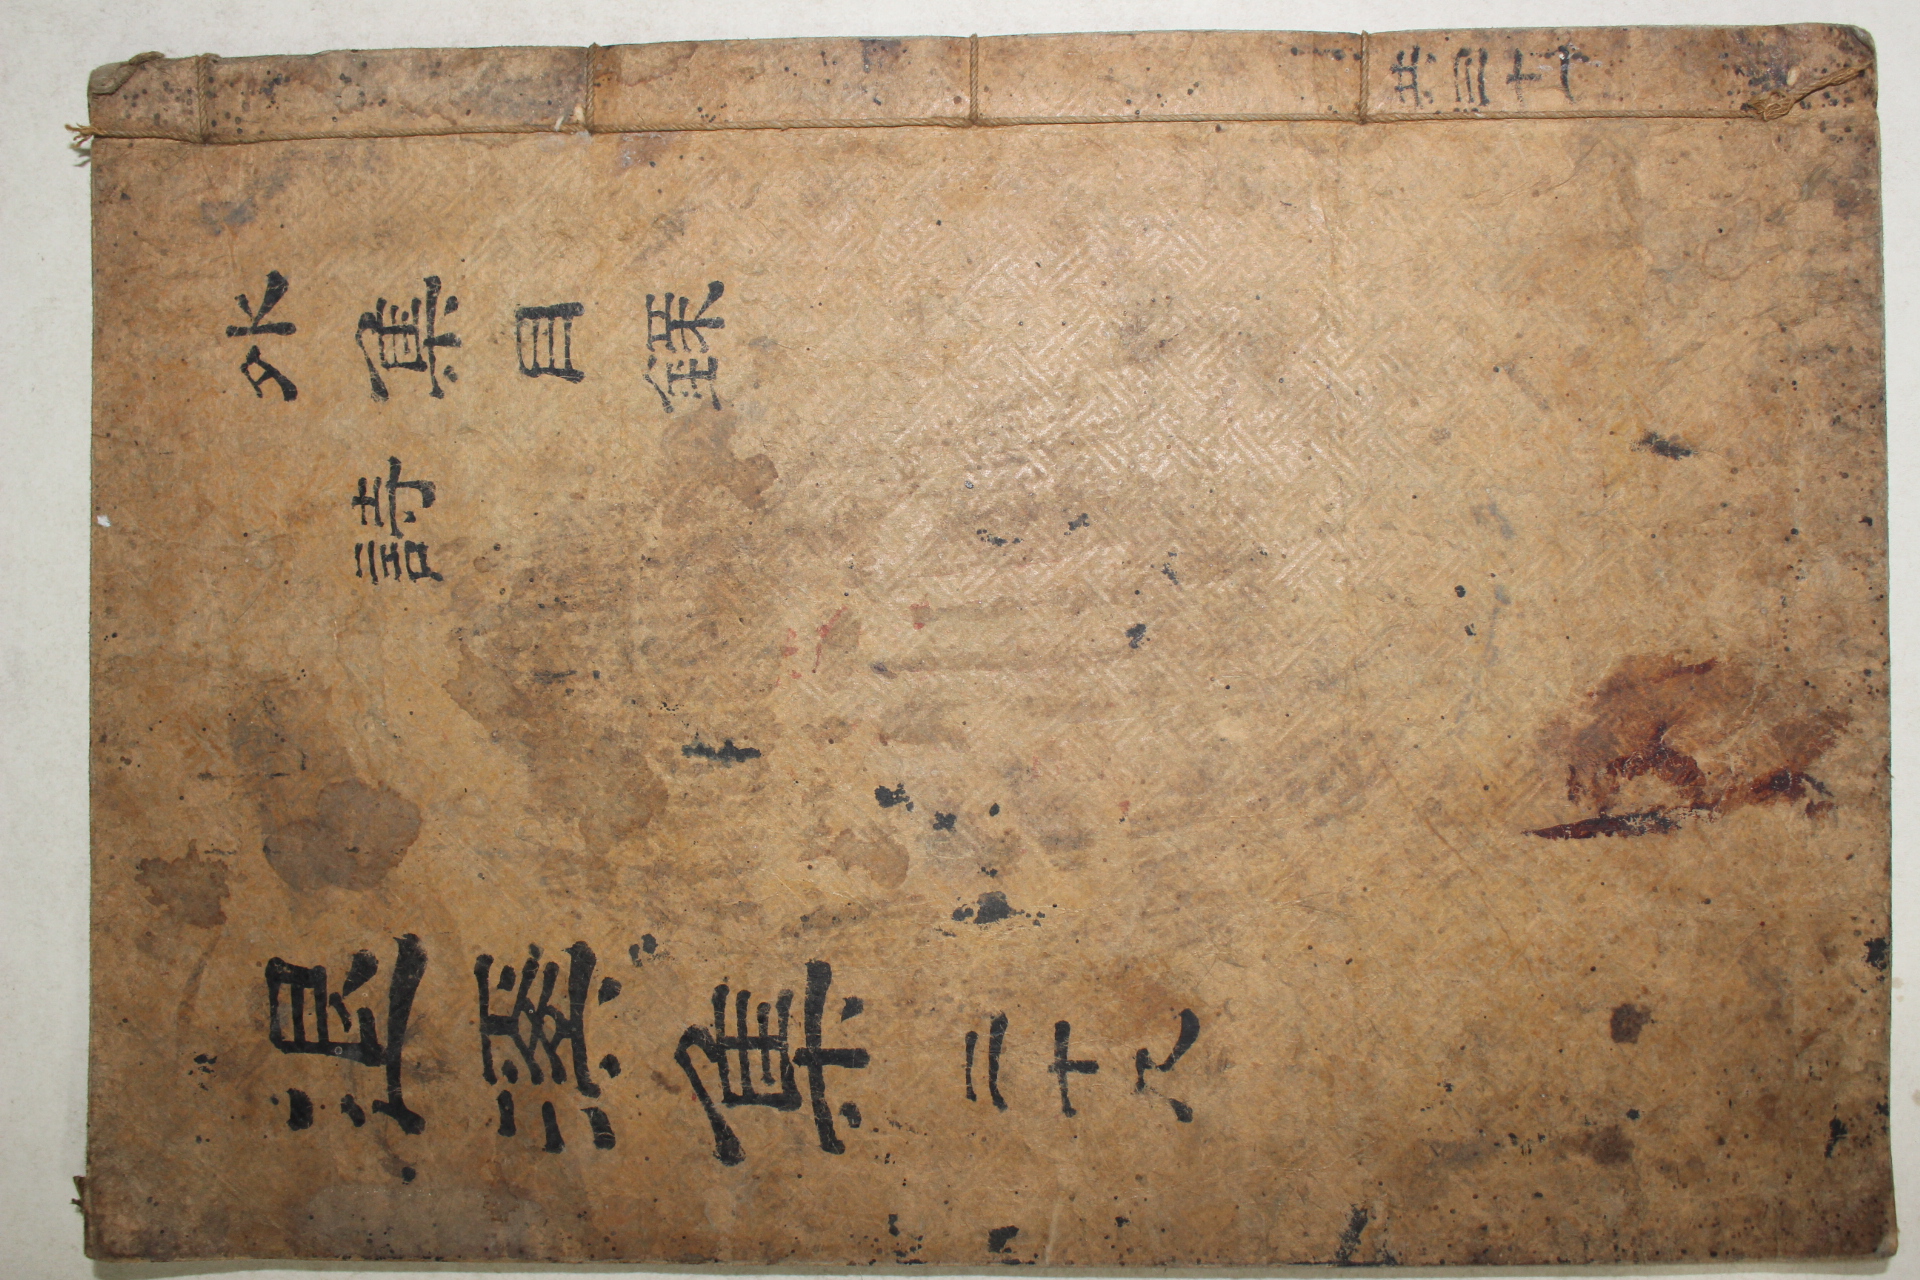 共三十
外集目錄
詩
退溪集 二十八